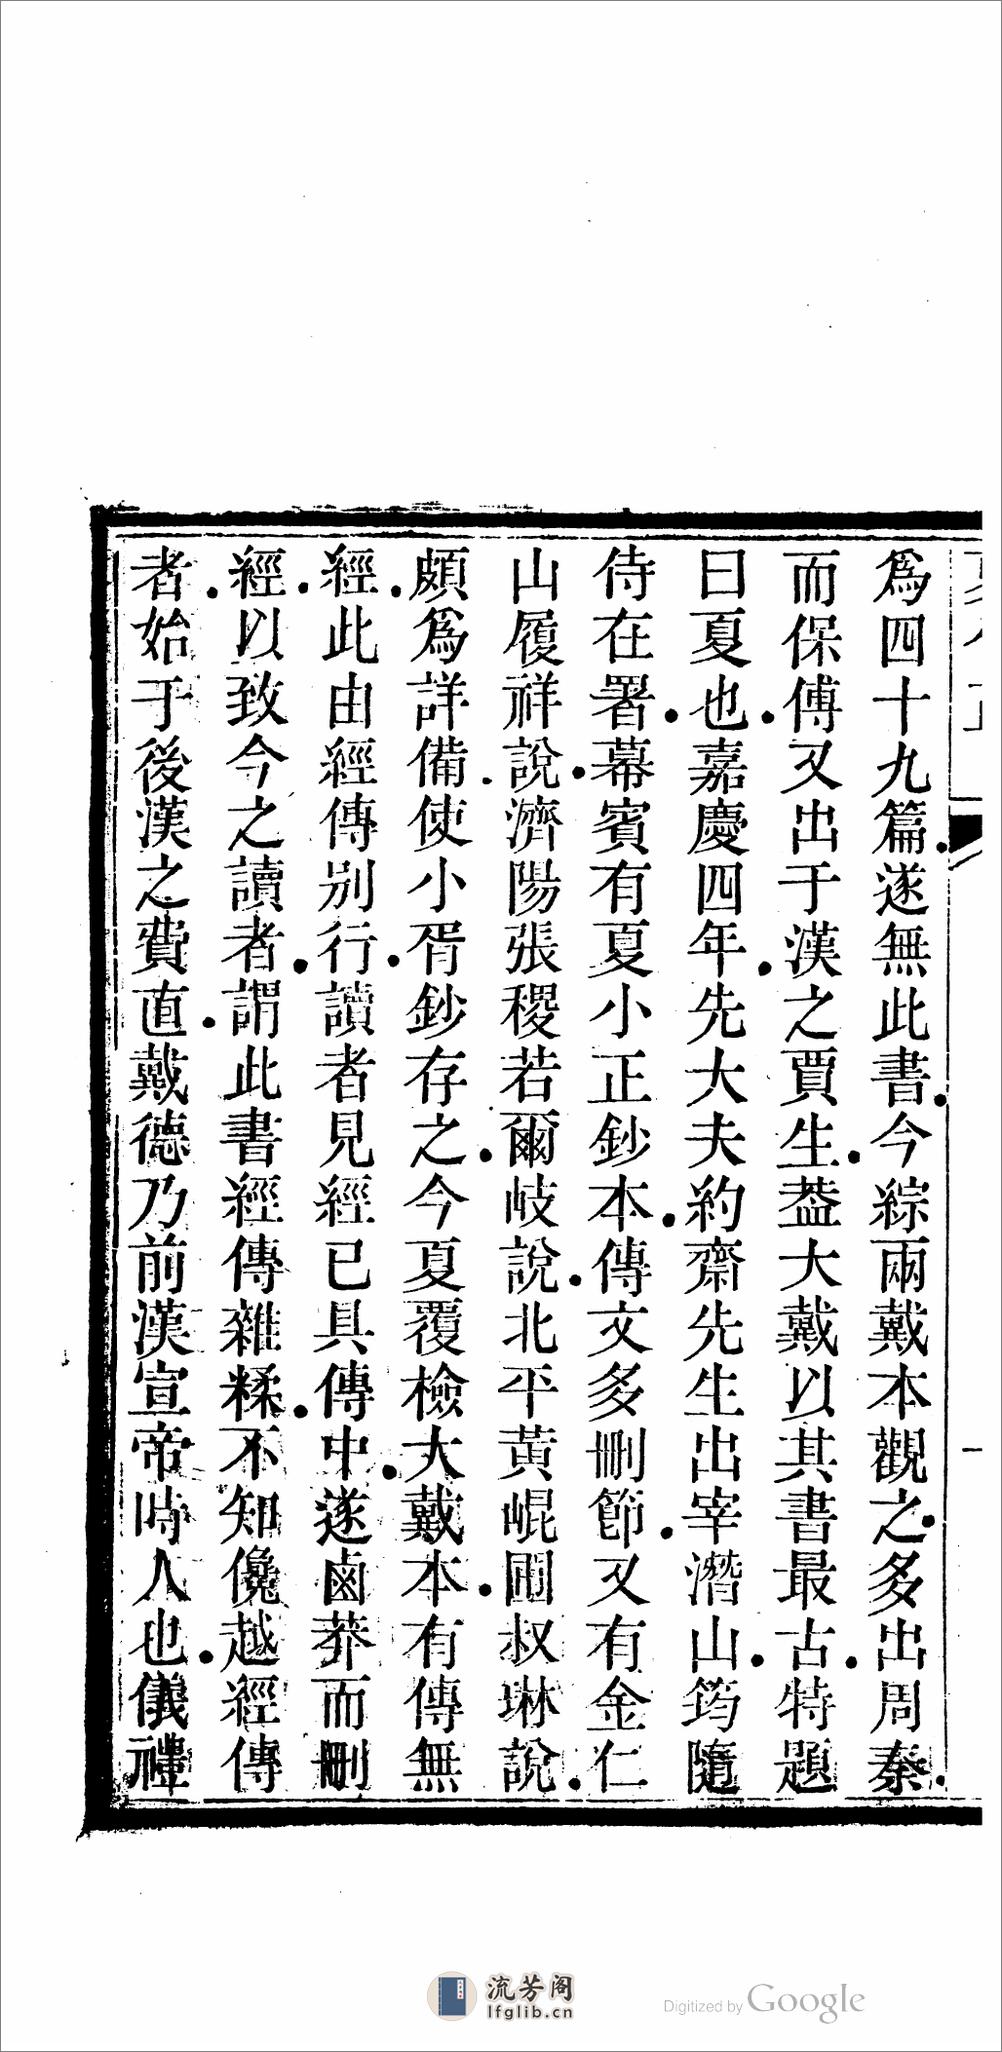 爲四十九篇遂無此書今綜兩戴本觀之多出周秦
而保傅又出于漢之賈生葢大戴以其書最古特題
曰夏也嘉慶四年先大夫約齋先生出宰潛山筠隨
侍在署幕賓有夏小正鈔本傳文多刪節又有金仁
山履祥說濟陽張稷若爾岐說北平黃崐圃叔琳說
頗爲詳備使小胥鈔存之今夏覆檢大戴本有傳無
經此由經傳別行讀者見經已具傳中遂鹵莽而刪
經以致今之讀者謂此書經傳雜糅不知儳越經傳
者始于後漢之費直戴德乃前漢宣帝時人也儀禮
流芳阁
lfglib.cn
Digitized by Google